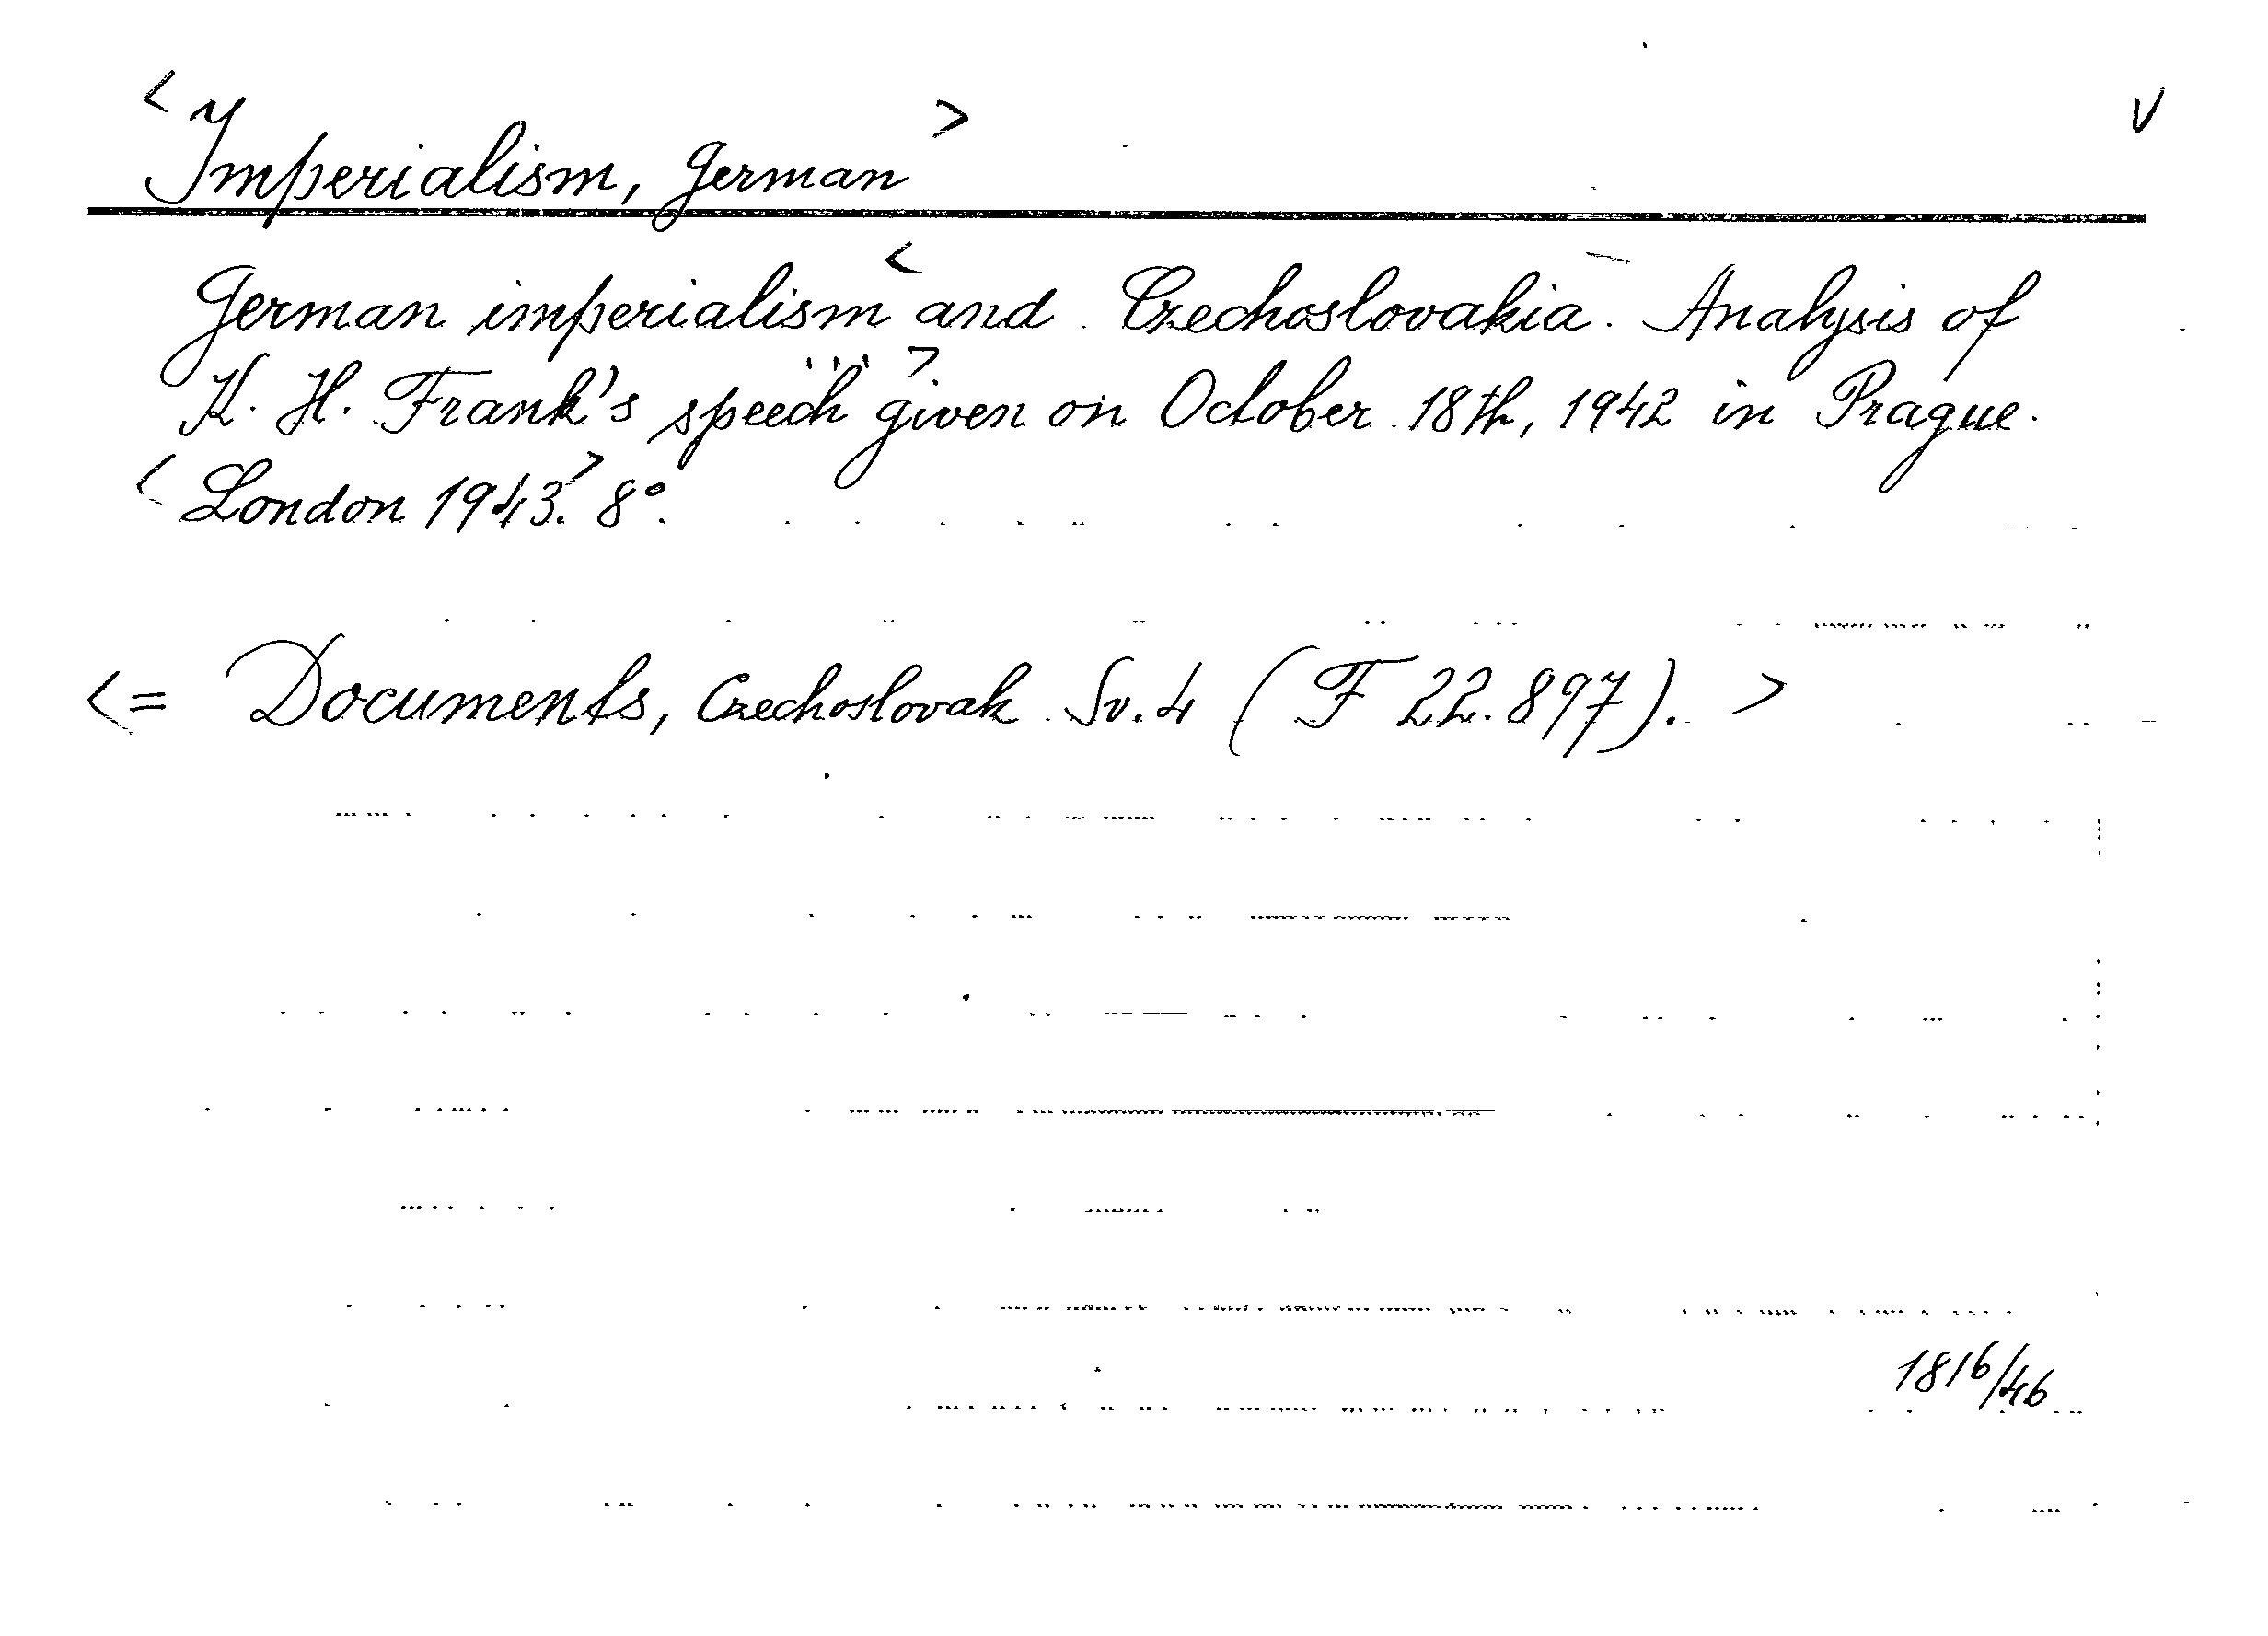 < Imperialism, German > V
German imperialism < and Czechoslovakia. Analysis of
K. H. Frank's speech > given on October 18th, 1942 in Prague.
< London 1943. > 8°.
<= Documents, Czechoslovak Sv. 4 (F 22.897). >
1816/46